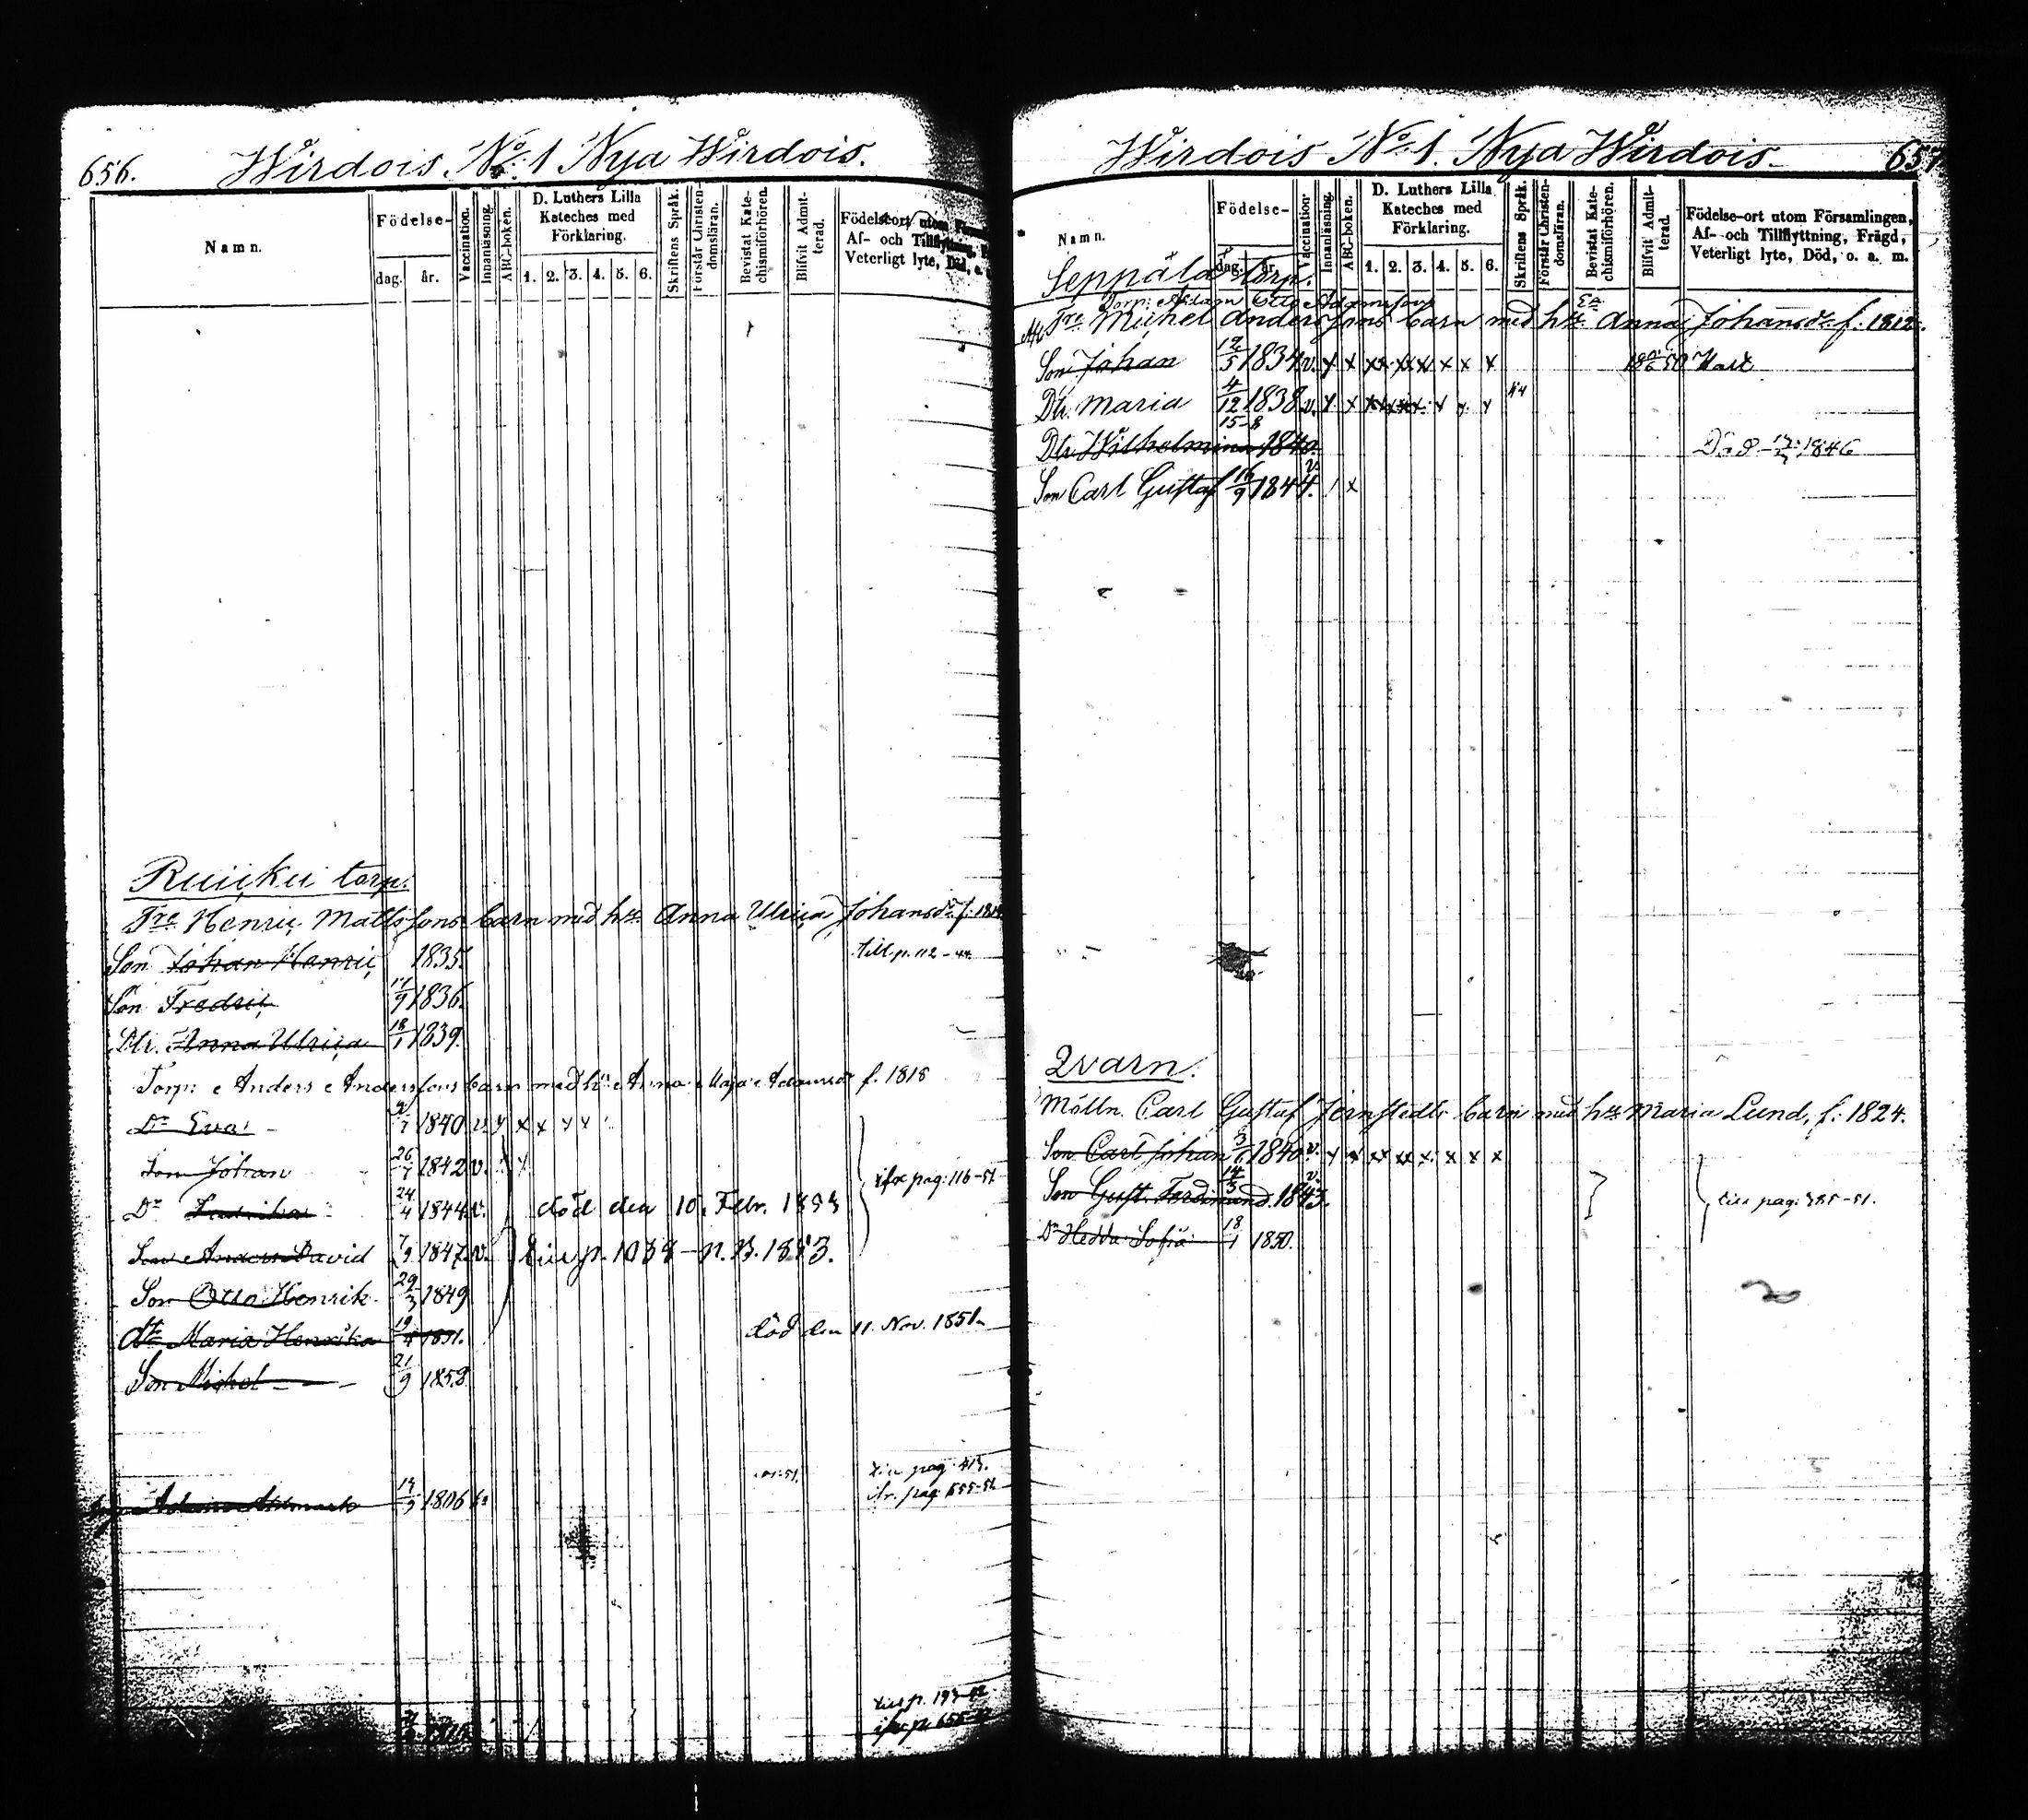 656. Wirdois. No: 1 Nya Wirdois.
Namn. Födelse- dag. år. Vaccination. Innanläsning. ABC-boken. D. Luthers Lilla Kateches med Förklaring. 1. 2. 3. 4. 5. 6. Skriftens Språk. Förstår Christendomsläran. Bevistat Katechismiförhören. Blifvit Admitterad. Födelse-ort utom
Af- och Tillflyttning,
Veterligt lyte, Död, o.
Ruicku torp.
Tre Henric Mattssons barn med hu Anna Ulrica Johansdr f. 181
Son Johan Henric 1835. till p. 112-44
Son Fredric 17/9 1836.
Dtr. Anna Ulrica 18/1 1839.
Torp: Anders Anderssons barn med hu Anna Maja Adamsdr f. 1818
Dr Eva 1840 v. x x x x x
Son Johan 26/7 1842 v. x ifr pag: 116-51
Dr Fredrika 24/4 1844 v. död den 10. Febr. 1853
Son Anders David 7/9 1847 v. till p. 1038 - N.B. 1853.
Son Otto Henrik 29/3 1849
dtr Maria Henrika 19/4 1851. död den 11. Nov. 1851
Son Michel 21/9 1853.
pag 413.
Adam 1806 ifr. pag 655-52
till p. 193
ifr p. 655
Wirdois No: 1. Nya Wirdois. 657
Namn. Födelse- dag. år. Vaccination. Innanläsning. ABC-boken. D. Luthers Lilla Kateches med Förklaring. 1. 2. 3. 4. 5. 6. Skriftens Språk. Förstår Christendomsläran. Bevistat Katechismiförhören. Blifvit Admitterad. Födelse-ort utom Församlingen,
Af- och Tillflyttning, Frägd,
Veterligt lyte, Död, o. a. m.
Seppälä torp.
Torp: Adam Otto Adamsson
Tre Michel Anderssons barn med hu Anna Johansdr f. 1812.
Son Johan 12/5 1834 v. x x xx xx xx x x x
Dtr. Maria 4/12 1838 v. x x xx xx xx x x x
Dtr Wilhelmina 15-8 1840. Död 1846
Son Carl Gustaf 16/9 1844. v. / x
Qvarn.
Mölln. Carl Gustaf Jernstedts barn med hu Maria Lund, f. 1824.
Son Carl Johan 1840 v. x x xx xx x x x x
Son Gust. Ferdinand 14/3 1843. v. till pag: 385-51.
Dr Hedda Sofia 18/1 1850.